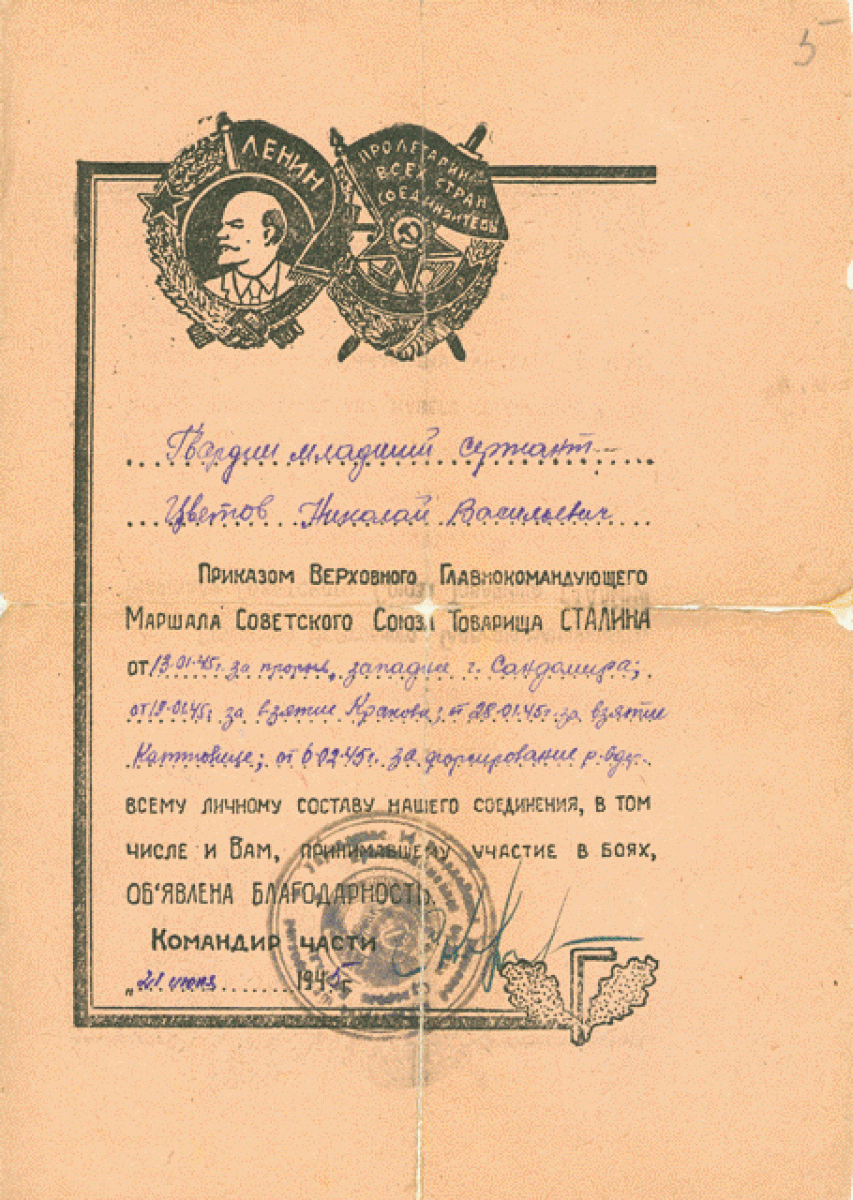 5
ЛЕНИН
ПРОЛЕТАРИИ
ВСЕХ СТРАН
СОЕДИНЯЙТЕСЬ
Гвардии младший сержант
Цветов Николай Васильевич
Приказом Верховного Главнокомандующего
Маршала Советского Союза Товарища СТАЛИНА
от 13.01.45г. за прорыв, западнее г. Сандомира;
от 19.01.45г. за взятие Кракова; от 28.01.45г. за взятие
Каттовице; от 6.02.45г. за форсирование р.
всему личному составу нашего соединения, в том
числе и Вам, принимавшему участие в боях,
об'явлена благодарность.
Командир части
„21 июня 1945г